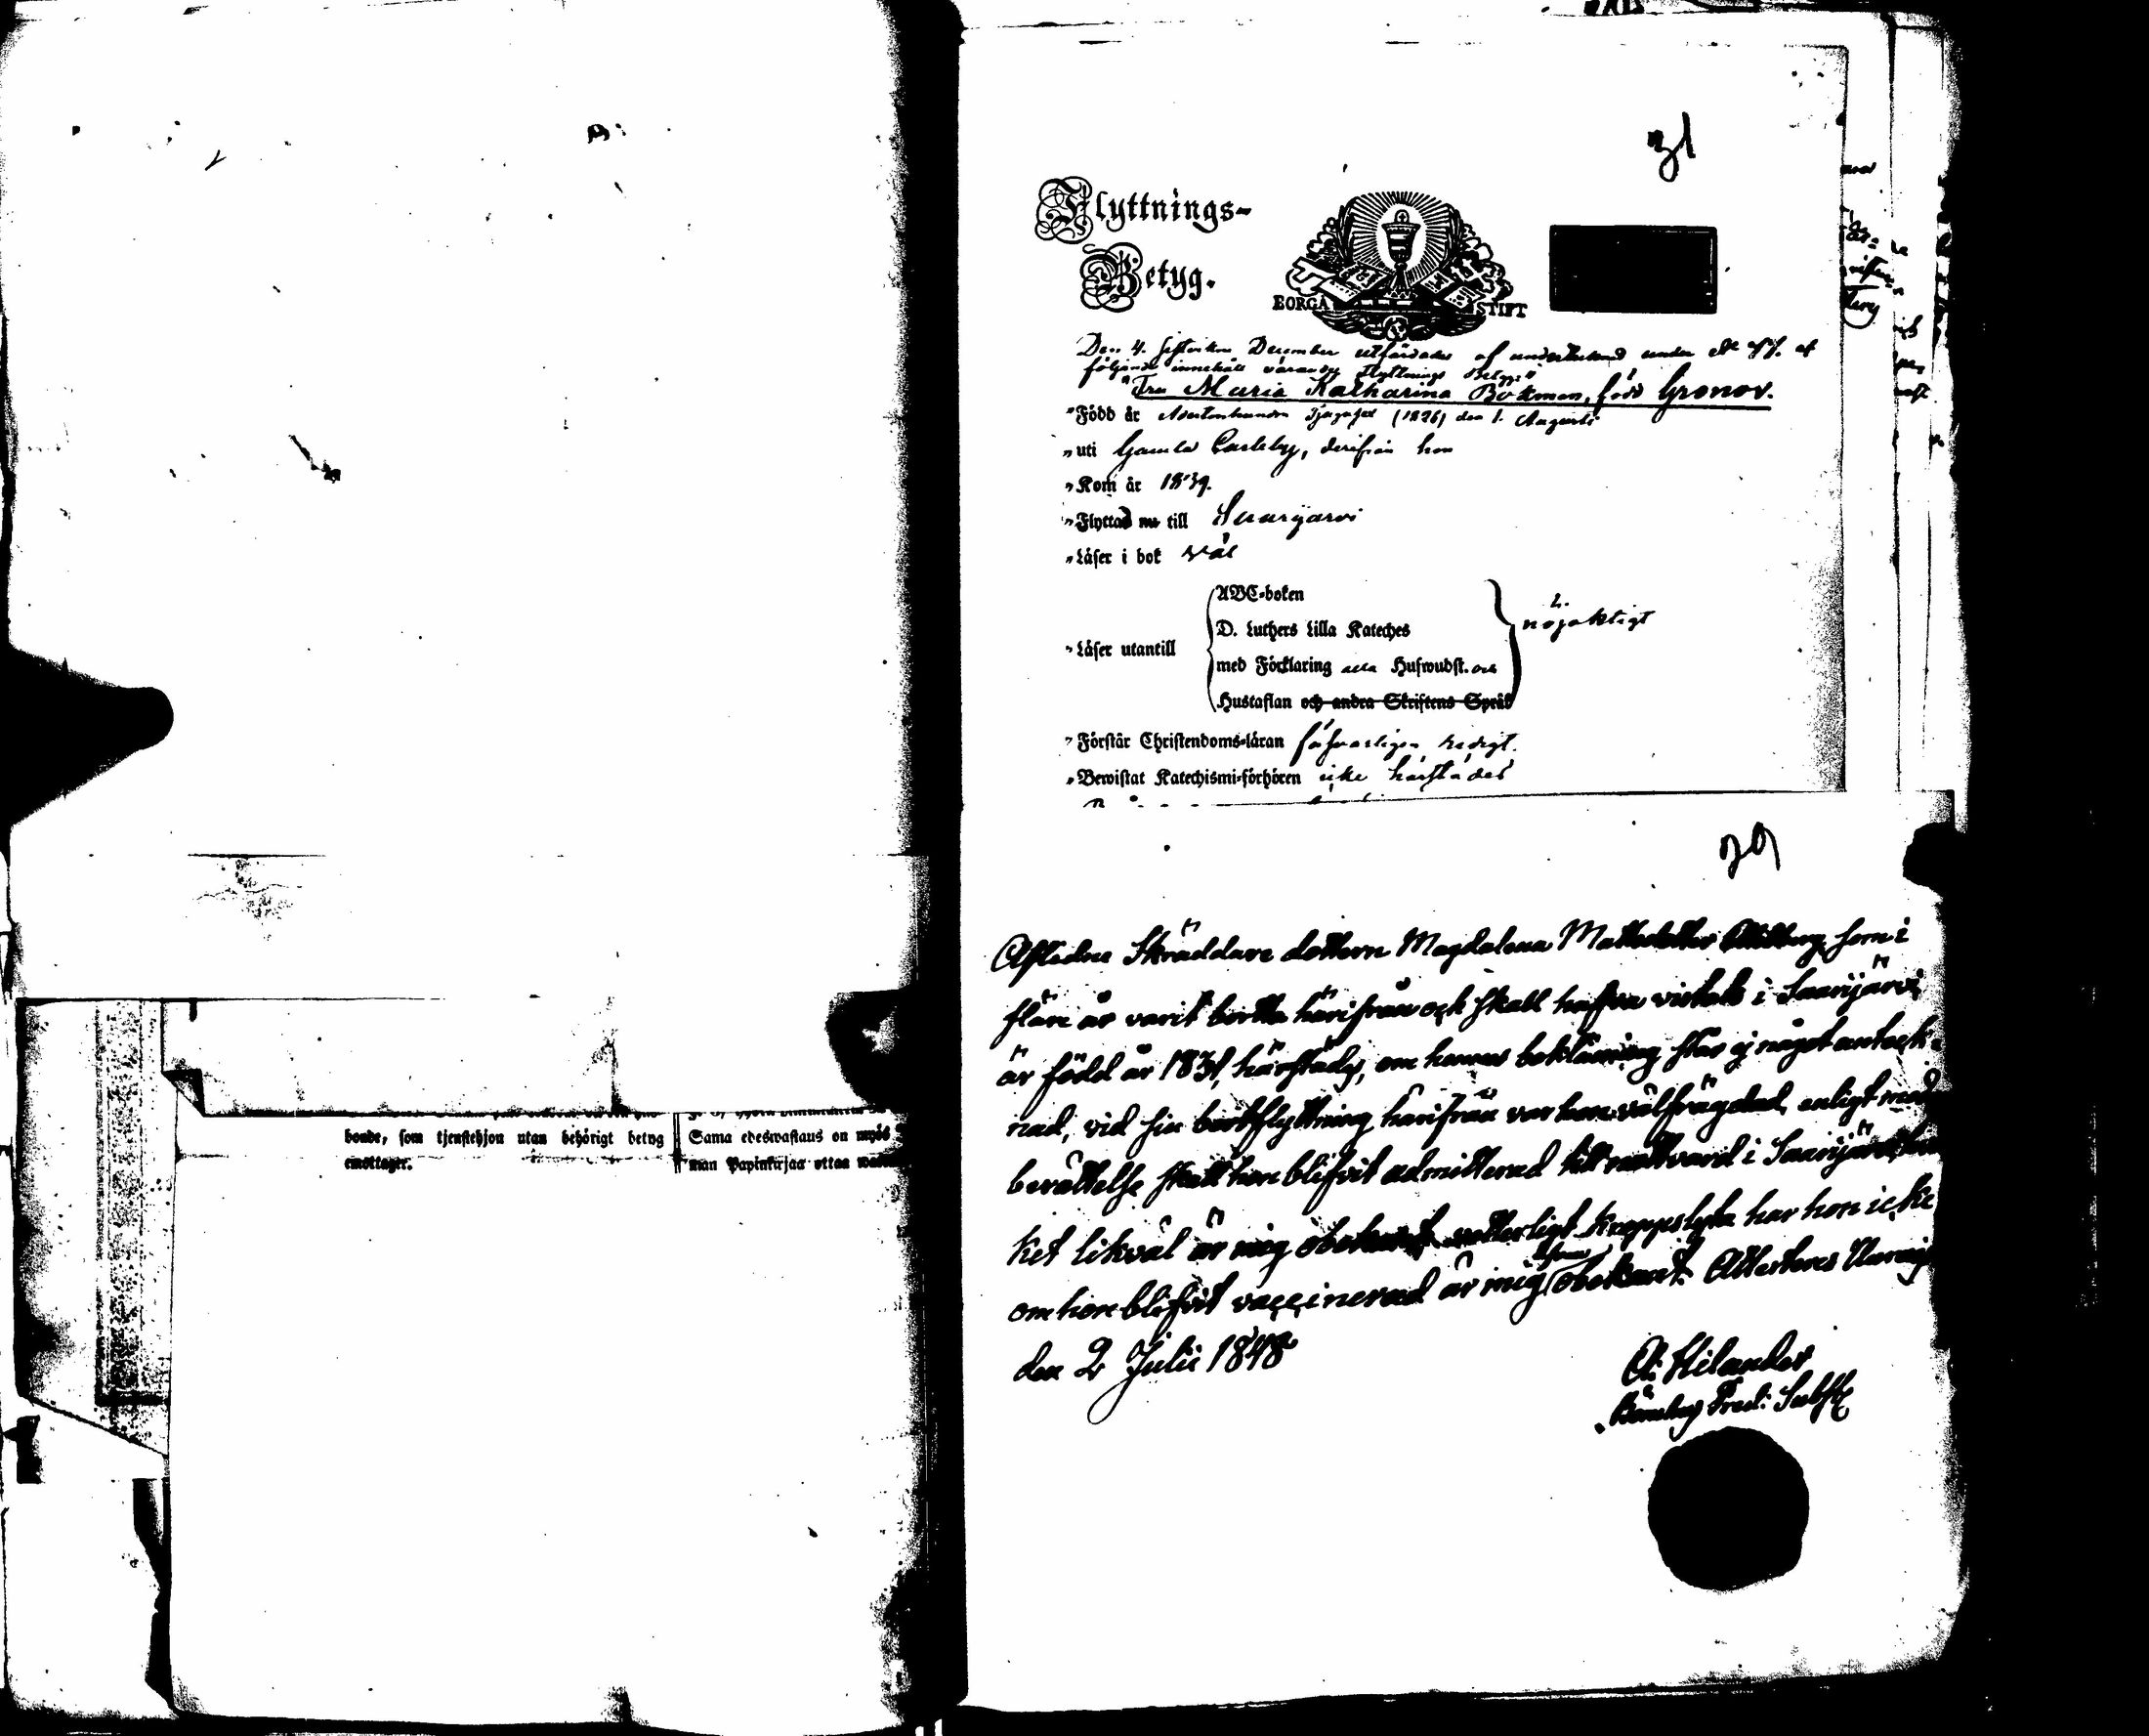 bonde, som tjenstehjon utan behörigt betyg
emottager.
Sama edeswastaus on myös
man Papinkirjaa ottaa
31
Flyttnings-
Betyg.
BORGÅ STIFT
Den 4. December utfärdades af undertecknad under
följande innehåll varande Flyttnings Betyg:
"Fru Maria Katharina Bokman, född Gronov.
"Född år Adertonhundra Tjugusex (1826) den 1. Augusti
"uti Gamla Carleby, derifrån hon
"Kom år 1839.
"Flyttad nu till Saarijärvi
"Läser i bok väl
"Läser utantill
ABC-boken
D. Luthers Lilla Kateches
med Förklaring alla Hufwudst. och
Hustaflan och andra Skriftens Språk
nöjaktigt
"Förstår Christendoms-läran försvarligen redigt.
"Bewistat Katechismi-förhören icke härstädes
29
Aflidne Skräddare dottern Magdalena Mattsdotter som i
flere år varit borta härifrån och skall hafva vistats i Saarijärvi,
är född år 1831, härstädes, om hennes bekläning står ej något anteck-
nad, vid sin bortflyttning härifrån var hon välfrägdad, enligt
berättelse skall hon blifvit admitterad till nattvard i Saarijärvi,
ket likväl är mig obekant vetterligt kroppslyte har hon icke
om hon blifvit vaccinerad är mig obekant. Attesteras
den 2 Julii 1848
A. Hilander